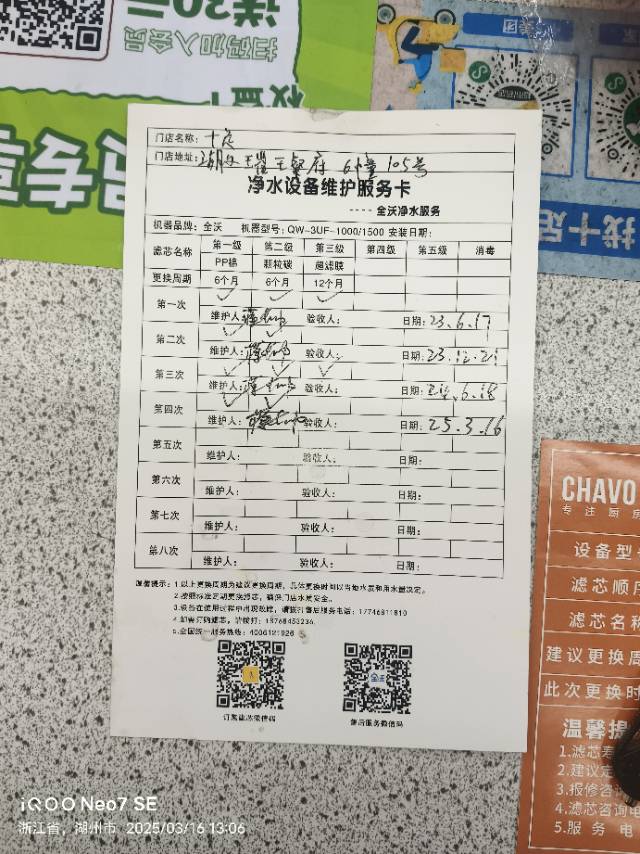 送30元
扫码加入会员
找十足
门店名称：十足
门店地址：
105号
净水设备维护服务卡
---- 全沃净水服务
机器品牌：全沃 机器型号：QW-3UF-1000/1500 安装日期：
滤芯名称 第一级 第二级 第三级 第四级 第五级 消毒
PP棉 颗粒碳 超滤膜
更换周期 6个月 6个月 12个月
第一次 ✓ ✓ ✓
维护人： 验收人： 日期：23.6.17
第二次 ✓ ✓
维护人： 验收人： 日期：23.12.21
第三次 ✓ ✓ ✓
维护人： 验收人： 日期：
第四次 ✓ ✓
维护人： 验收人： 日期：25.3.16
第五次
维护人： 验收人： 日期：
第六次
维护人： 验收人： 日期：
第七次
维护人： 验收人： 日期：
第八次
维护人： 验收人： 日期：
温馨提示：1.以上更换周期为建议更换周期，具体更换时间以当地水质和用水量决定。
2.按照标准定期更换滤芯，确保门店水质安全。
3.设备在使用过程中出现故障，请拨打售后服务电话：17746811810
4.如需订购滤芯，请拨打：13768453236.
5.全国统一服务热线：4006121926
订购滤芯微信码 售后服务微信码
CHAVO
专注厨房
设备型号
滤芯顺序
滤芯名称
建议更换周
此次更换时
温馨提
1.滤芯寿
2.建议定
3.报修咨询
4.滤芯咨询电
5.服务电
iQOO Neo7 SE
浙江省，湖州市 2025/03/16 13:06